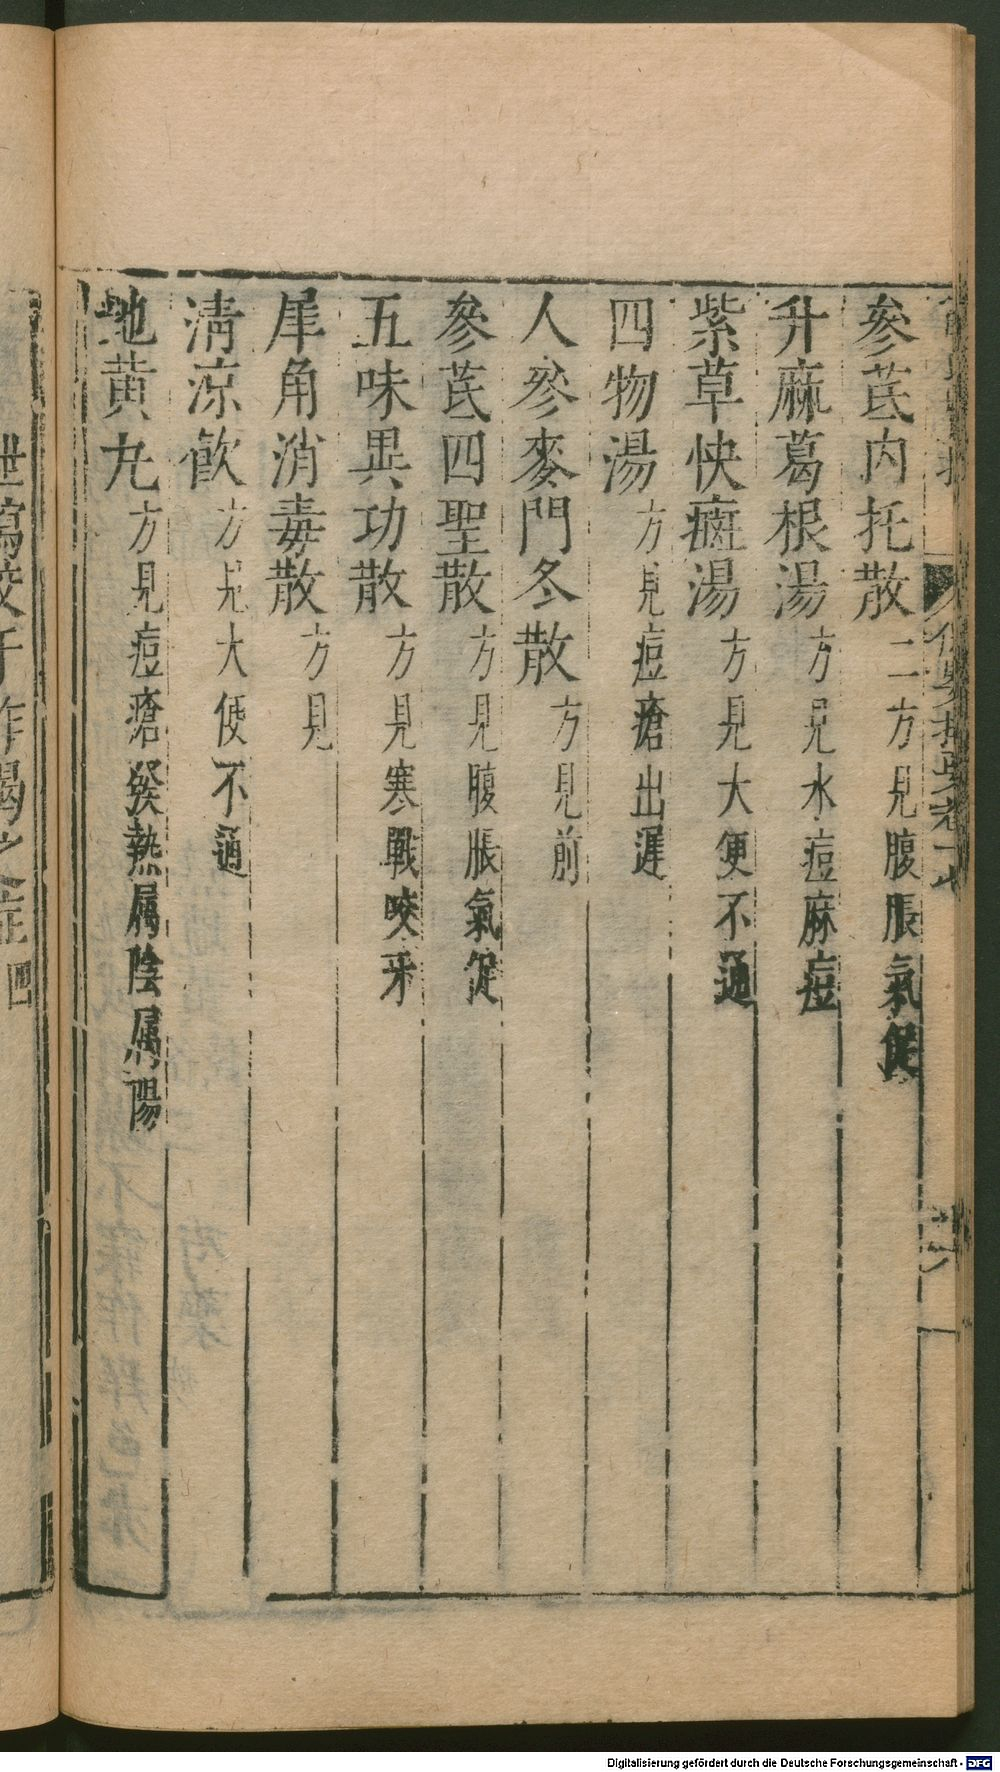 參芪内托散二方見腹脹氣促
升麻葛根湯方見水痘麻痘
紫草快癍湯方見大便不通
四物湯方見痘瘡出遲
人參麥門冬散方見前
參芪四聖散方見腹脹氣促
五味異功散方見寒戰咬牙
犀角消毒散方見
清凉飲方見大便不通
地黄丸方見痘瘡發熱屬陰屬陽
Digitalisierung gefördert durch die Deutsche Forschungsgemeinschaft - DFG